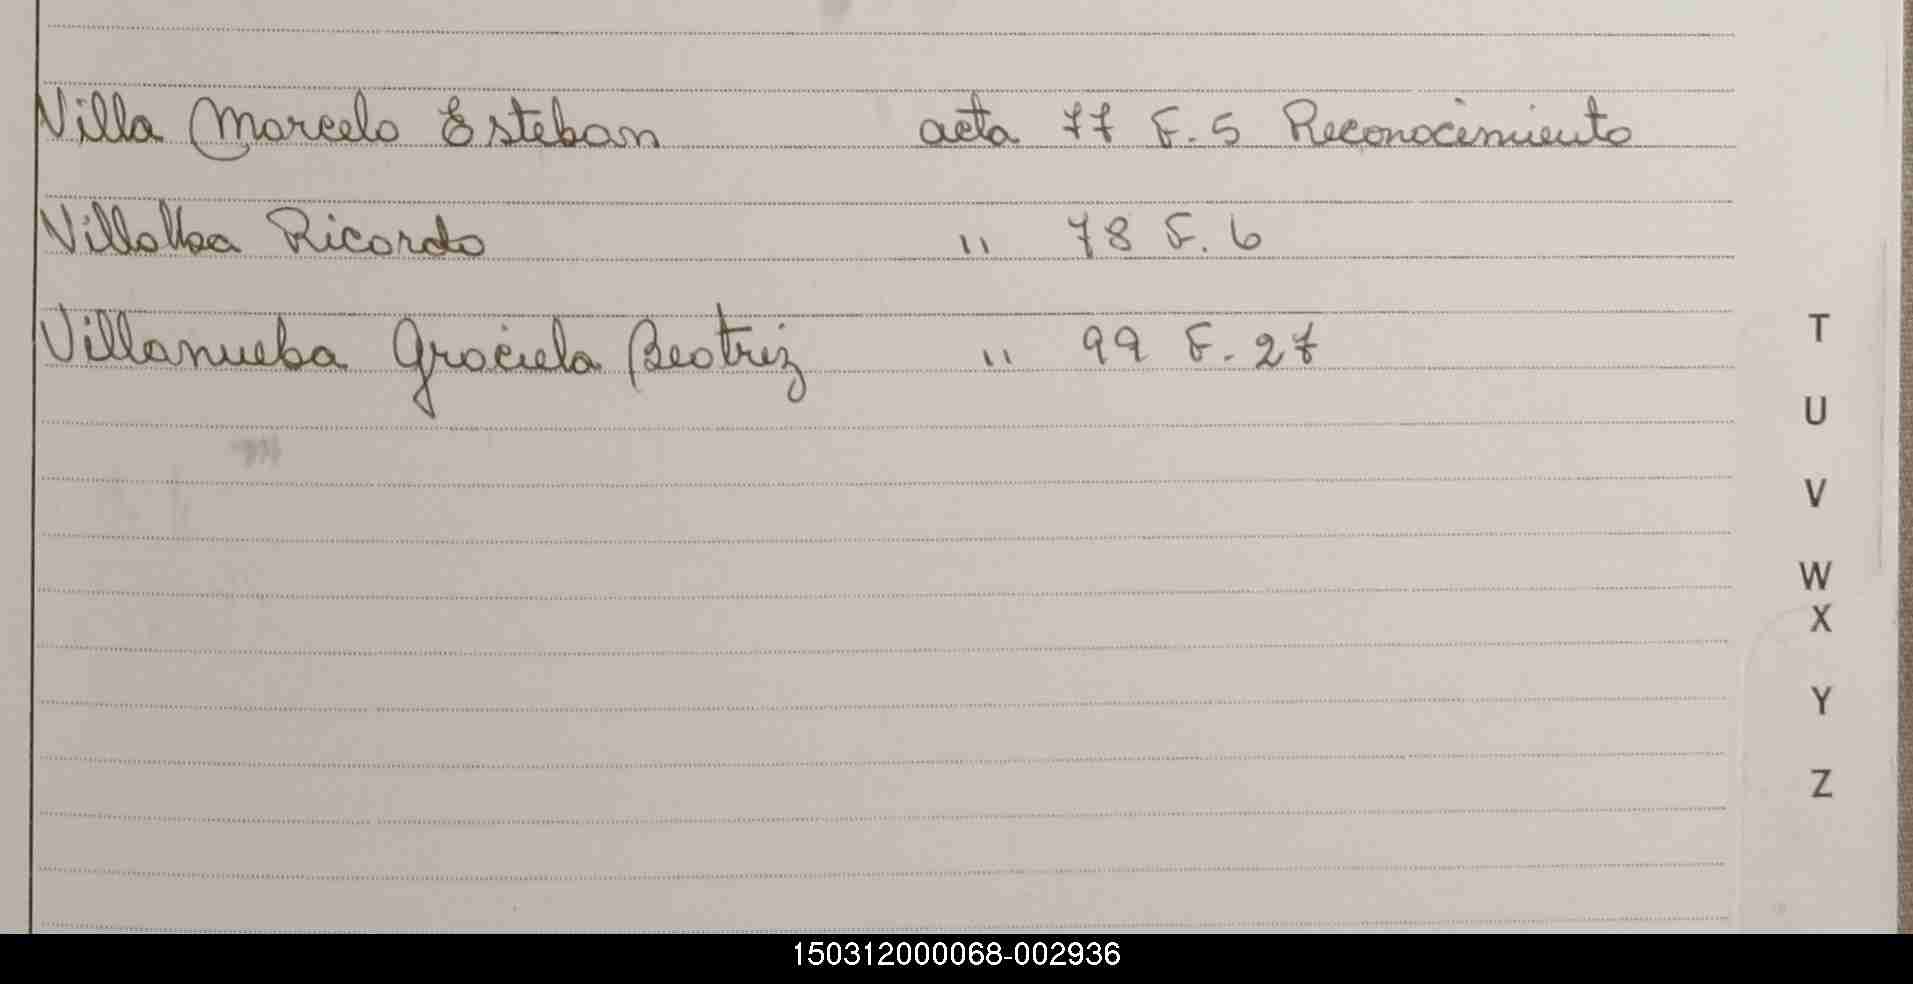 Villa Marcelo Esteban acta 77 F. 5 Reconocimiento
Villalba Ricardo " 78 F. 6
Villanueba Graciela Beatriz " 99 F. 27
T
U
V
W
X
Y
Z
150312000068-002936